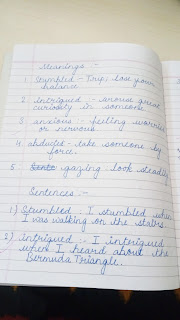 Meanings :-
1 Stumbled - Trip, lose your
balance
2 intrigued - arouse great
curiosity in someone
3 anxious - feeling worried
or nervous
4 abducted - take someone by
force
5 gazing - look steadily
Sentences :-
1) Stumbled - I stumbled when
I was walking on the stairs.
2) intrigued :- I intrigued
when I heard about the
Bermuda Triangle.